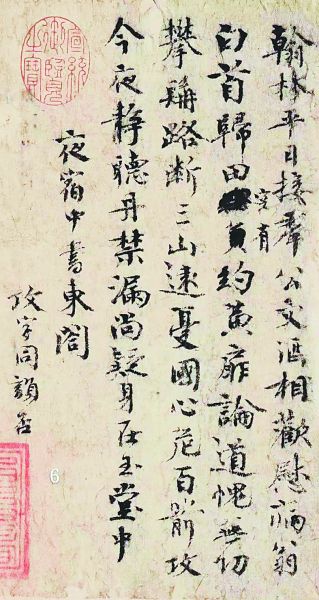 翰林平日接羣公文酒相歡慰病翁
空有
白首歸田負約黃扉論道愧無功
攀髯路斷三山遠憂國心危百箭攻
今夜靜聽丹禁漏尚疑身在玉堂中
夜宿中書東閣
攻字同韻否
宣統御覽之寶
6